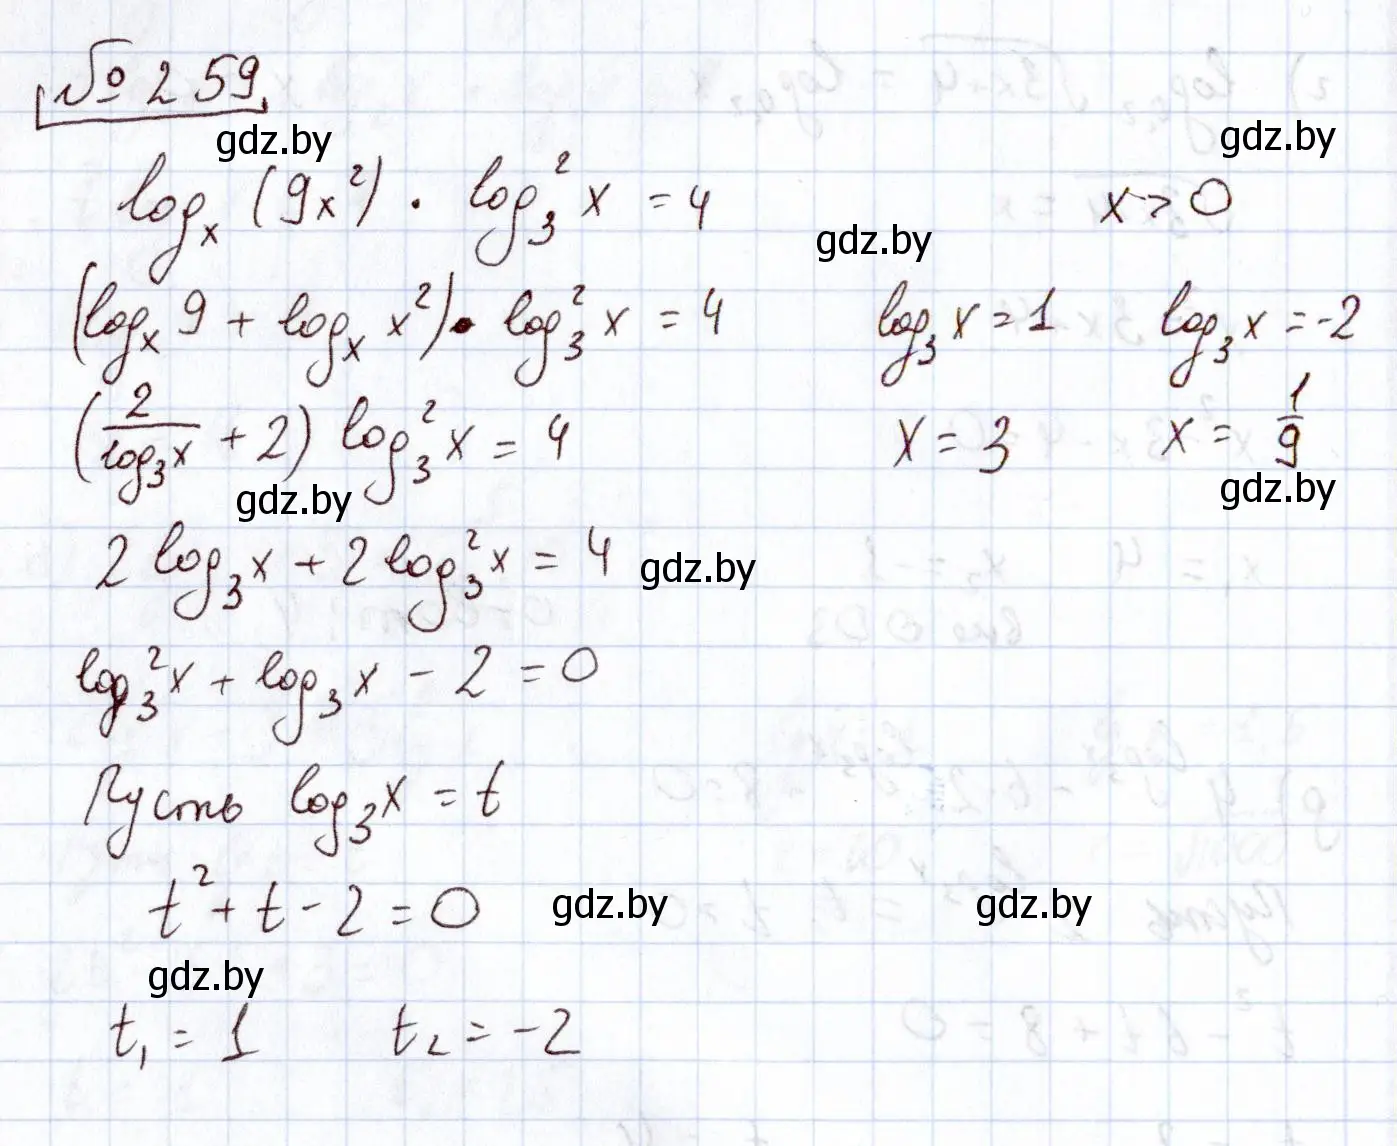 № 259
gdz.by
gdz.by
logₓ (9x²) · log₃² x = 4
x > 0
gdz.by
(logₓ 9 + logₓ x²) · log₃² x = 4
log₃ x = 1
log₃ x = -2
(2/log₃x + 2) log₃² x = 4
x = 3
x = 1/9
gdz.by
gdz.by
2 log₃ x + 2 log₃² x = 4
gdz.by
log₃² x + log₃ x - 2 = 0
Пусть log₃ x = t
t² + t - 2 = 0
gdz.by
gdz.by
gdz.by
t₁ = 1
t₂ = -2